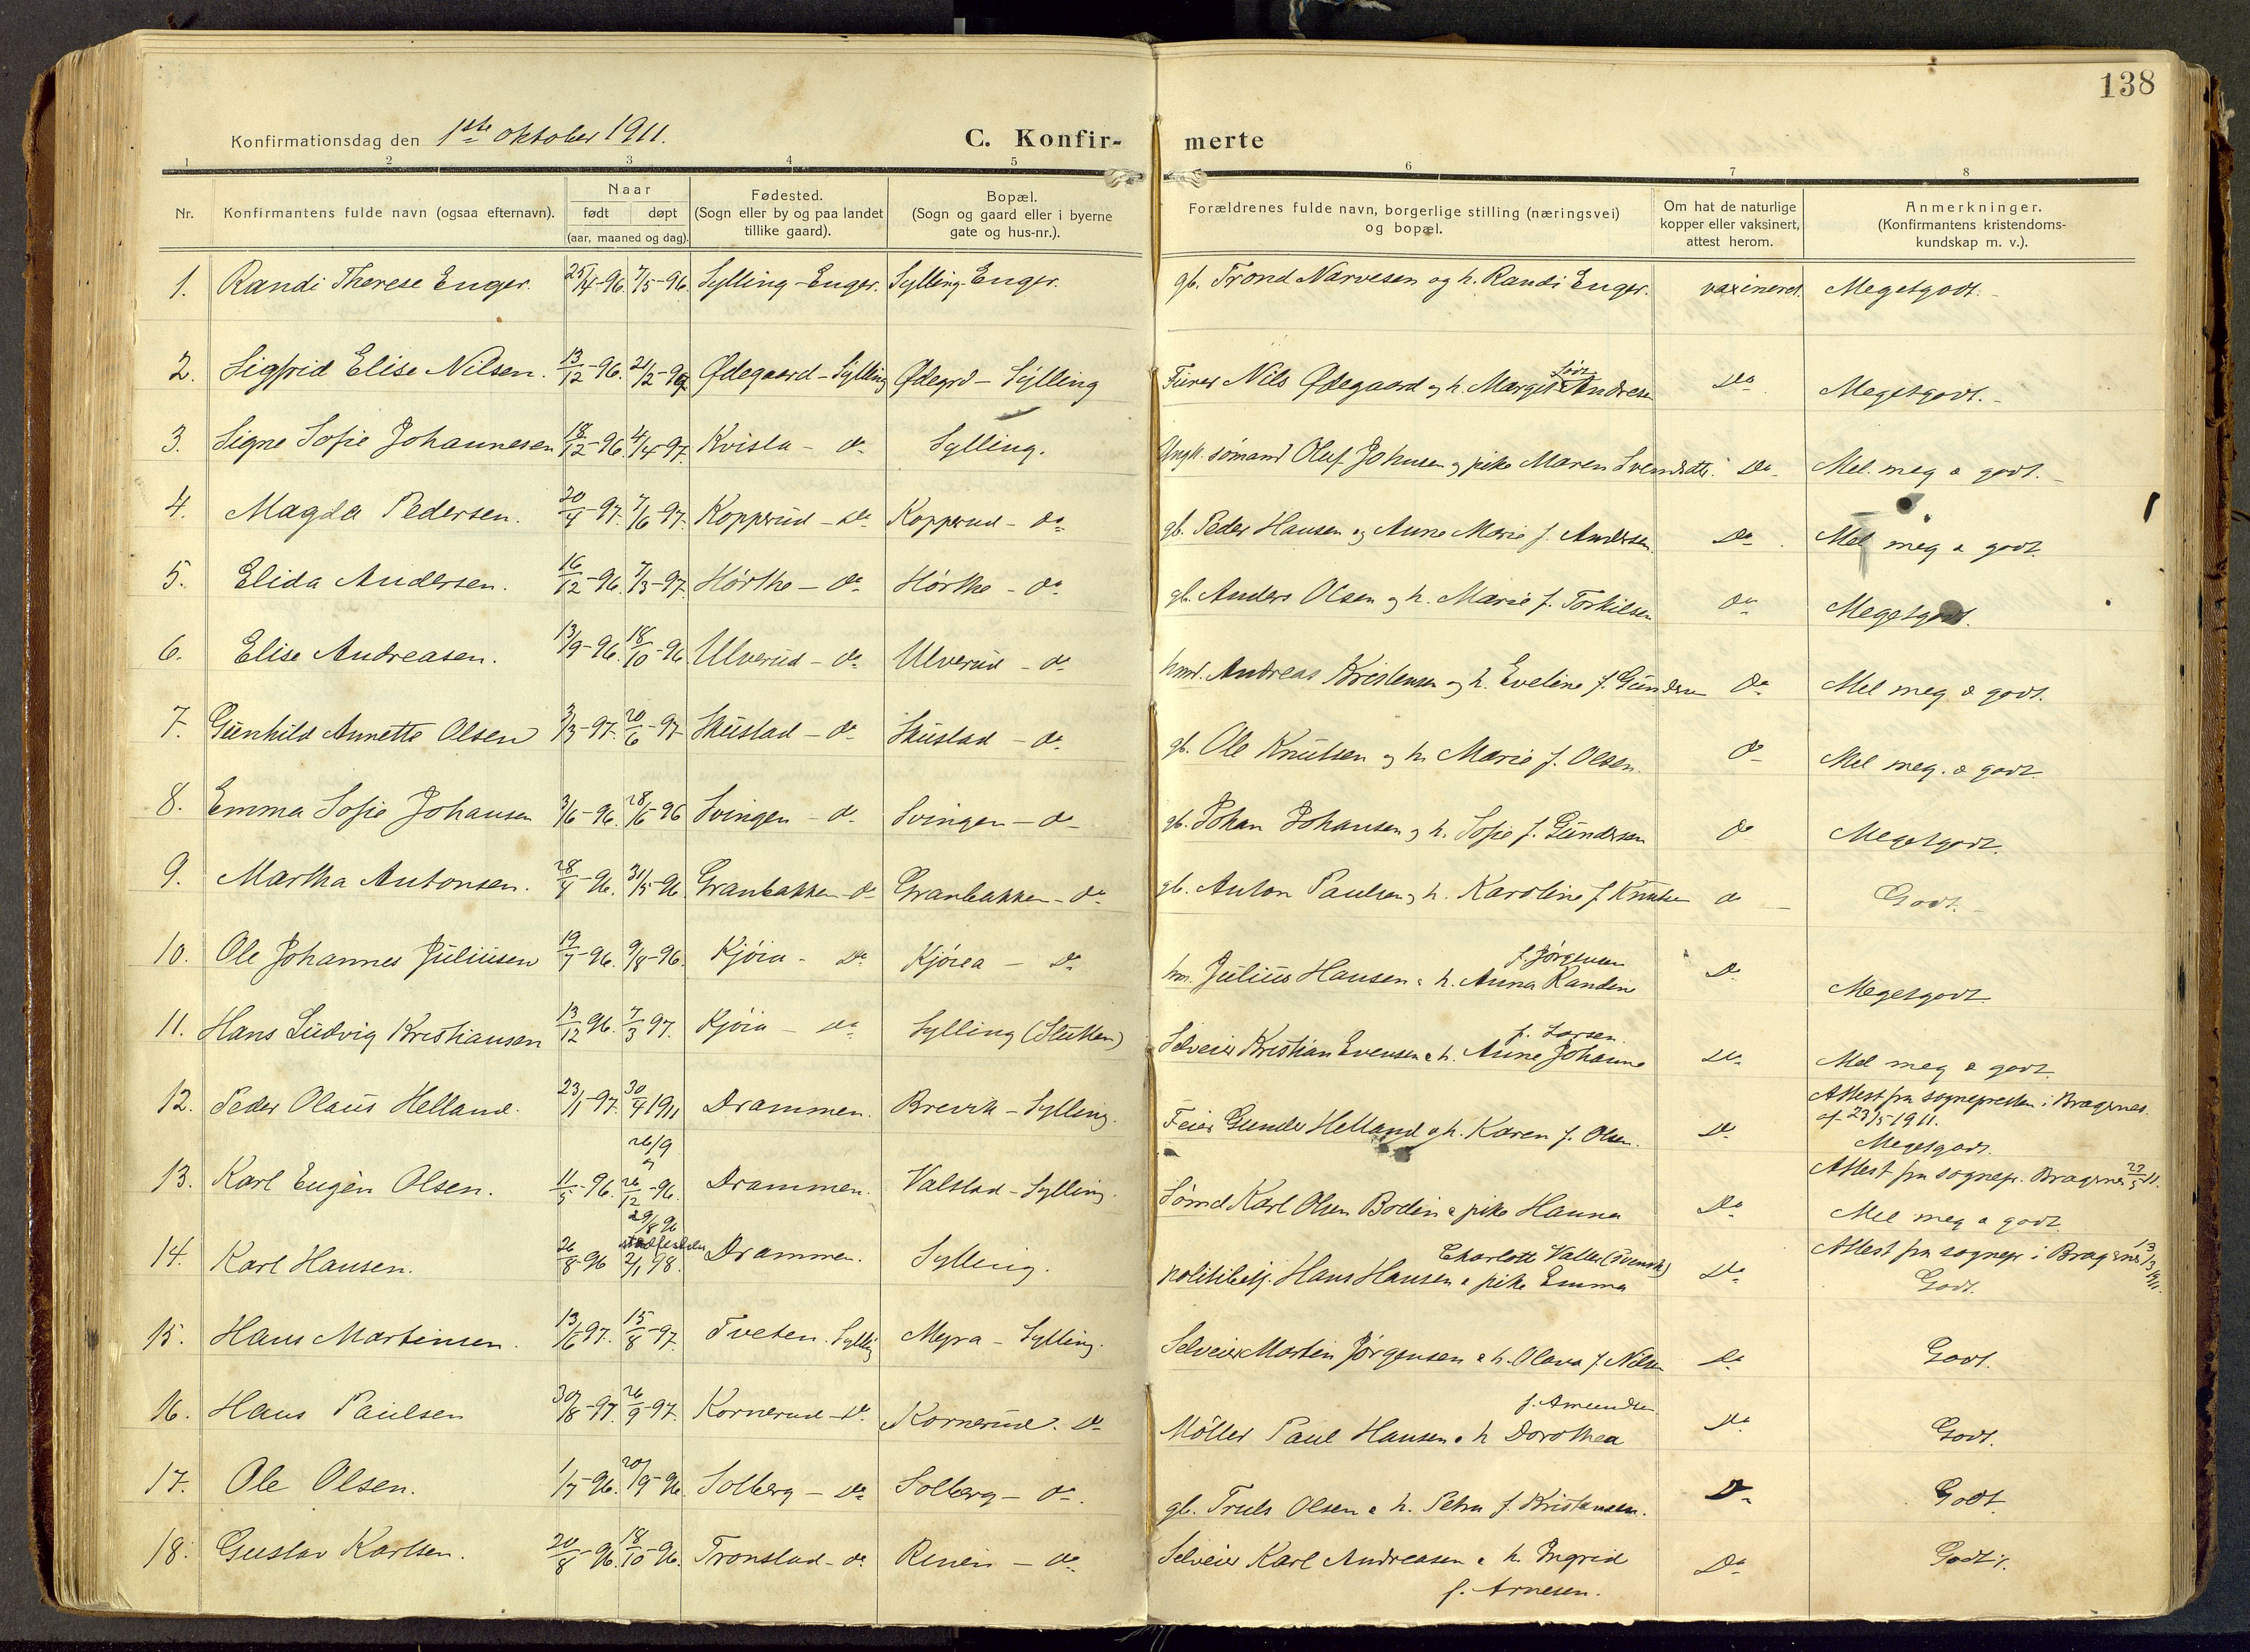 138
Konfirmationsdag den 1ste oktober 1911. C. Konfir- merte
1 2 3 4 5 6 7 8
Nr. Konfirmantens fulde navn (ogsaa efternavn). Naar født døpt (aar, maaned og dag). Fødested. (Sogn eller by og paa landet tillike gaard). Bopæl. (Sogn og gaard eller i byerne gate og hus-nr.). Forældrenes fulde navn, borgerlige stilling (næringsvei) og bopæl. Om hat de naturlige kopper eller vaksinert, attest herom. Anmerkninger. (Konfirmantens kristendoms- kundskap m. v.).
1. Randi Therese Enger. 25/4-96. 7/5-96. Sylling-Enger. Sylling-Enger. gb. Trond Narvesen og h. Randi Enger. vaxineret. Megetgodt.
2. Sigfrid Elise Nilsen. 13/12-96. 21/2-97 Ødegaard-Sylling Ødegrd-Sylling Furer Nils Ødegaard og h. Margit født Andresen Do Megetgodt.
3. Signe Sofie Johannesen 18/12-96. 4/4-97. Kvisla-do Sylling. Ungk. sømand Oluf Johnsen og pike Maren Svendsdtr. Do Mel. meg a godt.
4. Magda Pedersen. 20/4-97. 7/6-97. Kopperud-do Kopperud-do gb. Peder Hansen og Anne Marie f. Andersen. Do Mel meg a godt.
5. Elida Andersen. 16/12-96. 7/3-97. Hørthe-do Hørthe-do gb. Anders Olsen og h. Marie f. Torkilsen do Megetgodt.
6. Elise Andreasen. 13/9-96. 18/10-96 Ulverud-do Ulverud-do hmd. Andreas Kristensen og h. Eveline f. Gundersen do Mel meg a godt.
7. Gunhild Annette Olsen 3/3-97. 20/6-97 Skustad-do Skustad-do gb. Ole Knutsen og h. Marie f. Olsen. do Mel meg. a godt
8. Emma Sofie Johansen 3/6-96. 28/6-96 Svingen-do Svingen-do gb. Johan Johansen og h. Sofie f. Gundersen do Megetgodt.
9. Martha Antonsen. 28/4-96. 31/5-96. Granbakken-do Granbakken-do gb. Anton Paulsen og h. Karoline f. Knutsen do Godt.
10. Ole Johannes Juliusen 19/7-96. 9/8-96. Kjøia-do Kjøiea-do hm. Julius Hansen a h. Anna Randine f. Jørgensen Do Megetgodt.
11. Hans Ludvig Kristiansen 13/12 96. 7/3 97. Kjøia-do Sylling (Slutten) Selveier Kristian Evensen a h. Anne Johanne f. Larsen. Do Mel meg a godt.
12. Peder Olaus Helland. 23/1-97. 30/4 1911 Drammen. Brevik-Sylling. Feier Gunder Helland a h. Karen f. Olsen. Do Attest fra sognepresten i Bragernes af 23/5 1911. Megetgodt.
13. Karl Eugen Olsen. 11/5-96. 26/9 og 26/12-96. Drammen. Valstad-Sylling. Sømd Karl Olsen Bodin a pike Hanna Do Attest fra sognepr. Bragernes 22/5 11. Mel meg a godt
14. Karl Hansen. 26/8-96 29/8 96 stadfestelse 2/1 98. Drammen. Sylling. Politibetj. Hans Hansen a pike Emma Charlotte Valler (svensk) Do Attest fra sognepr. i Bragernes 13/3 1911. Godt.
15. Hans Martinsen. 13/6 97. 15/8-97. Tveten. Sylling Myra-Sylling. Selveier Martin Jørgensen a h. Olava f. Nilsen Do Godt.
16. Hans Paulsen 30/8-97. 26/9-97. Kornerud-do Kornerud. Do Møller Paul Hansen a h Dorothea f. Amundsen. Do Godt.
17. Ole Olsen. 1/7-96. 20/9-96. Solberg-do Solberg-do. gb. Truls Olsen a h. Petra f. Kristiansen. Do Godt
18. Gustav Karlsen. 20/8-96. 18/10-96. Tronstad-do Renen-do Selveier Karl Andreasen a h. Ingrid f. Arnesen. Do Godt.